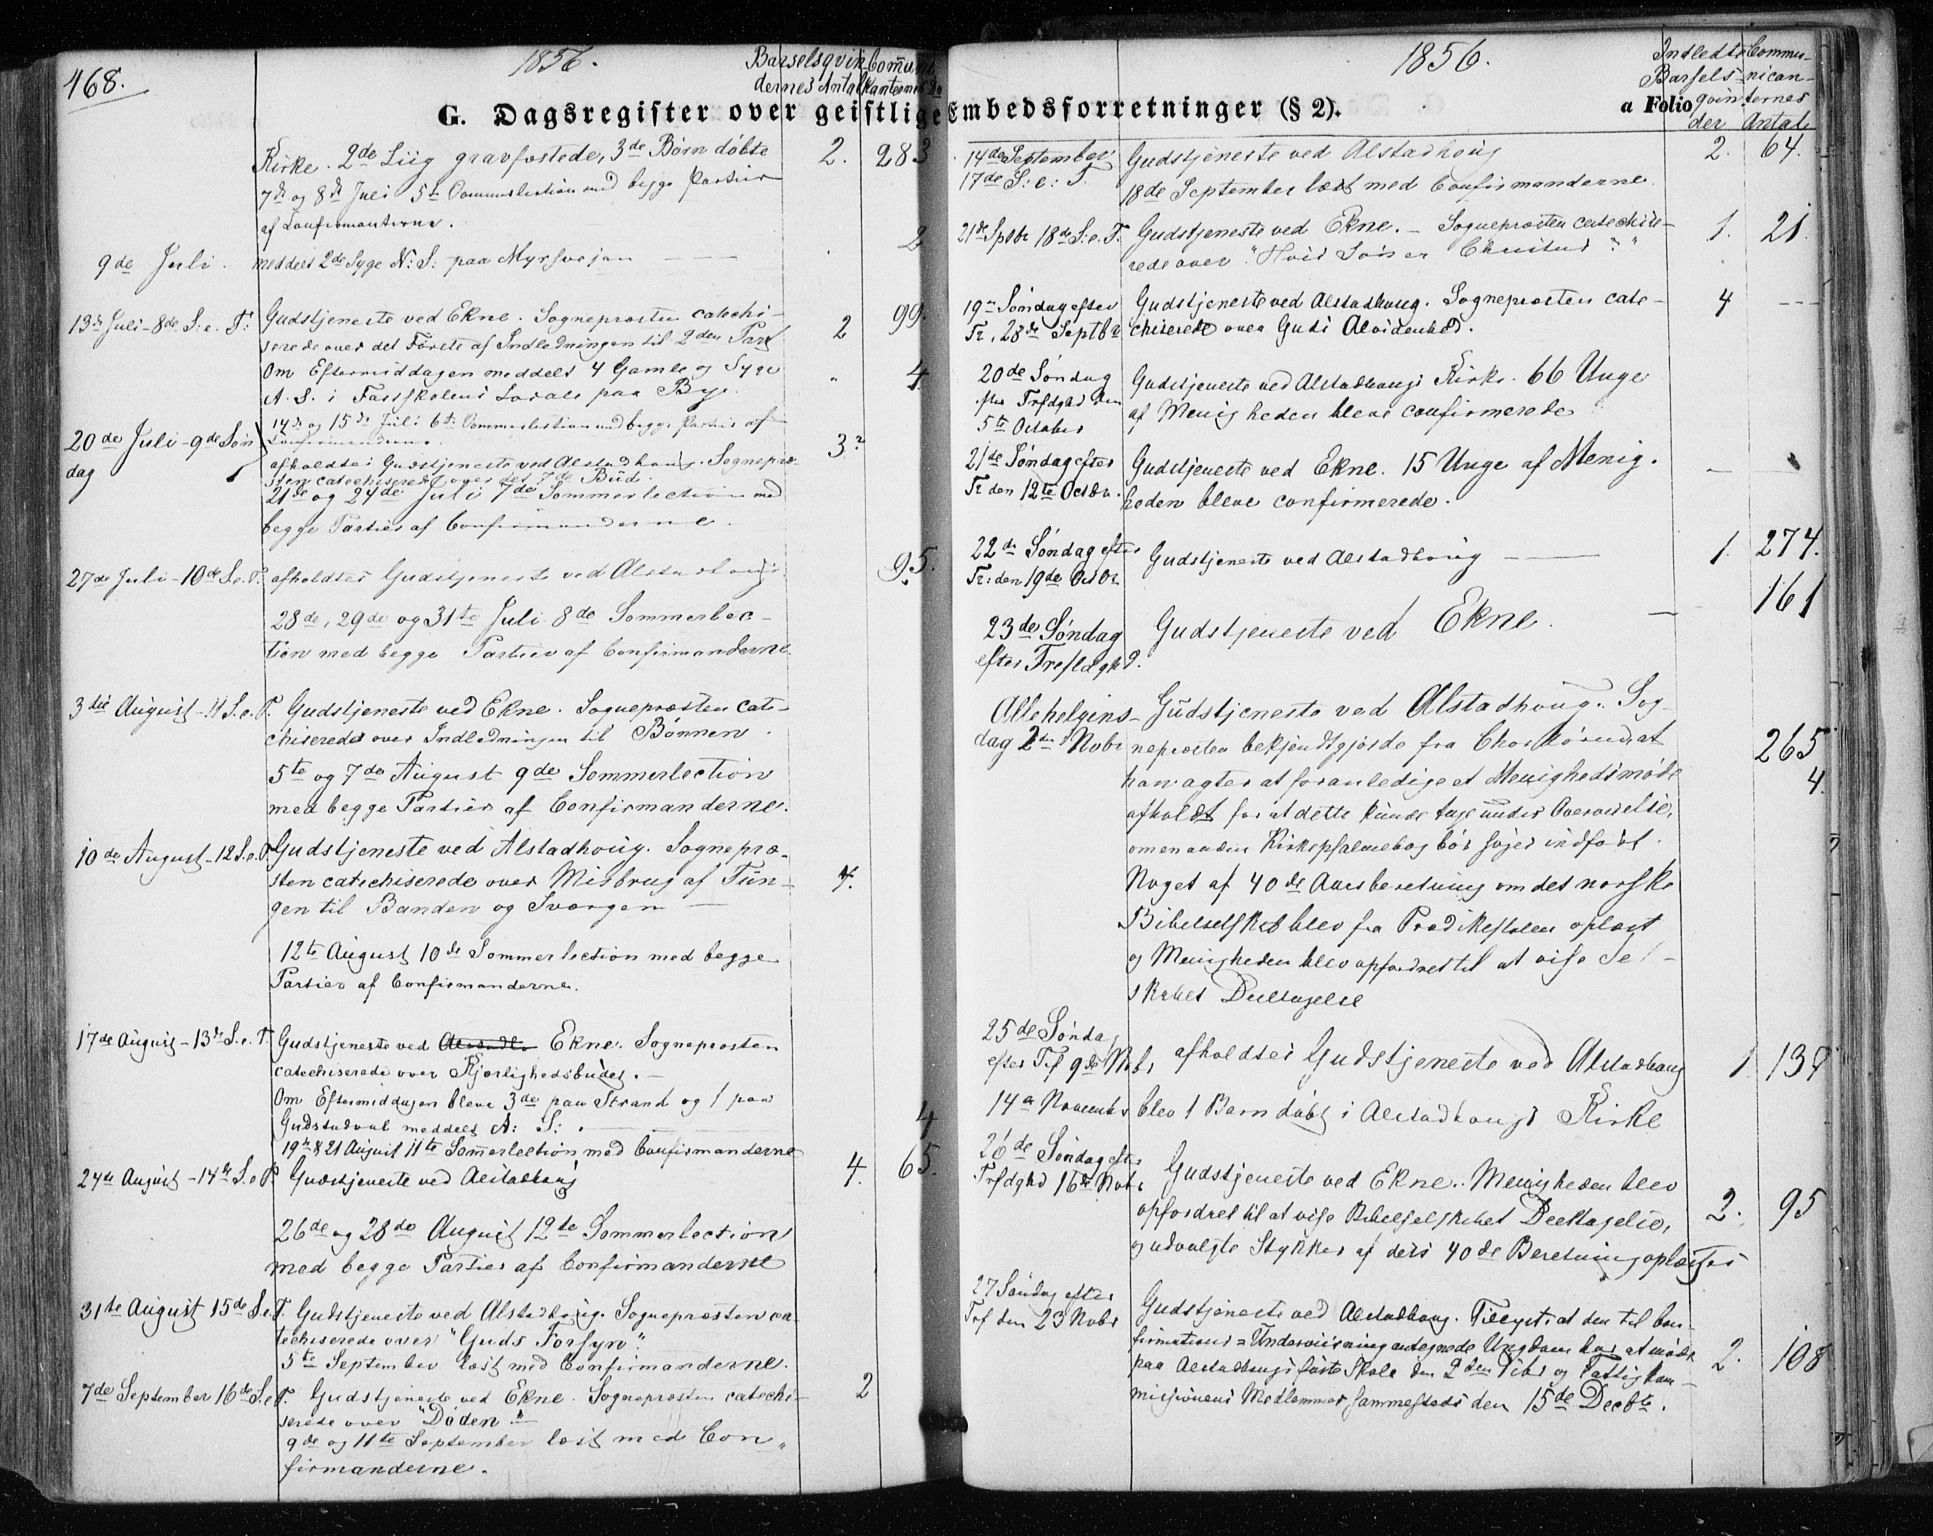 468.
1856.
Barselsqvin-
dernes Antal
Communi-
kanternes do
G. Dagsregister over geistlige
Kirke. 2de Liig gravfæstede, 3de Børn døbte 2. 283
7de og 8de Juli 5te Sommerlection med begge Partier
af Confirmanterne.
9de Juli. meddelt 2de Syge N: S: paa Myrsvejan — 2
13de Juli - 8de S. e. T: Gudstjeneste ved Ekne. Sognepræsten catechi- 2 99.
serede over det Første af Indledningen til 2den Part
Om Eftermiddagen meddelt 4 Gamle og Syge " 4
A. S. i Fastskolens Locale paa Bye.
14de og 15de Juli 6te Sommerlection med begge Partier af
Confirmanderne.
20de Juli - 9de Søn
dag
afholdtes Gudstjeneste ved Alstadhoug. Sognepræ- 3
sten catechiserede over det 7de Bud.
21de og 24de Juli 7de Sommerlection med
begge Partier af Confirmanderne.
27de Juli - 10de S. e. T. afholdtes Gudstjeneste ved Alstadhoug. 95.
28de, 29de og 31te Juli 8de Sommerlec-
tion med begge Partier af Confirmanderne
3die August - 11 S. e. T. Gudstjeneste ved Ekne. Sognepræsten cate-
chiserede over Indledningen til Bønnen.
5te og 7de August 9de Sommerlection
med begge Partier af Confirmanderne.
10de August - 12 S. e. T. Gudstjeneste ved Alstadhoug. Sognepræ-
sten catechiserede over Misbrug af Tun- 4.
gen til Banden og Sværgen —
12te August 10de Sommerlection med begge
Partier af Confirmanderne.
17de August - 13de S. e. T. Gudstjeneste ved Alstadh Ekne. Sognepræsten
catechiserede over Kjærlighedsbudet. —
Om Eftermiddagen bleve 3de paa Strand og 1 paa
Gudstadval meddelt A: S: — 4
19de & 21 August 11te Sommerlection med Confirmanderne
24de August - 14de S. e. T. Gudstjeneste ved Alstadhoug 4. 65.
26de og 28de August 12te Sommerlection
med begge Partier af Confirmanderne
31te August 15de S. e. T. Gudstjeneste ved Alstadhoug. Sognepræsten ca-
techiserede over "Guds Forsyn".
5te September læst med Confirmanderne.
7de September 16de S. e. T. Gudstjeneste ved Ekne. Sognepræsten catechi- 2
serede over "Døden"
9de og 11te September læst med Con-
firmanderne.
1856.
Indledte
Barsels-
qvin-
der
Commu-
nican-
ternes
Antal
Embedsforretninger (§ 2).
a Folio
14de September
17de S: e: T.
Gudstjeneste ved Alstadhoug 2. 64.
18de September læst med Confirmanderne.
21de Sptbr 18de S. e. T. Gudstjeneste ved Ekne. — Sognepræsten catechise- 1. 21.
rede over "Hvis Søn er Christus?"
19de Søndag efter
Tr. 28de Septbr
Gudstjeneste ved Alstadhoug. Sognepræsten cate- 4 ---
chiserede over Guds Alvidenhed.
20de Søndag
efter Trfdghd den
5te October
Gudstjeneste ved Alstadhougs Kirke. 66 Unge
af Menigheden bleve confirmerede
21de Søndag efter
Tr den 12te Octbr.
Gudstjeneste ved Ekne. 15 Unge af Menig- —
heden bleve confirmerede.
22de Søndag efter
Tr: den 19de Octbr
Gudstjeneste ved Alstadhoug — 1. 274.
23de Søndag
efter Trefldghd.
Gudstjeneste ved Ekne. — 161
Allehelgens-
dag 2den Novbr
Gudstjeneste ved Alstadhoug. Sog-
nepræsten bekjendtgjorde fra Chordøren, at 265
han agter at foranledige et Menighedsmøde 4.
afholdt for at dette kunde tage under Overveielse,
om en anden Kirkepsalmebog bør søges indført.
Noget af 40de Aarsberetning om det norske
Bibelselskab blev fra Prædikestolen oplæst
og Menigheden blev opfordret til at vise Sel-
skabet Deeltagelse
25de Søndag
efter Trf 9de Novbr
afholdtes Gudstjeneste ved Alstadhoug 1 139
14de November blev 1 Barn døbt i Alstadhougs Kirke
26de Søndag efter
Trfdghd 16de Novbr
Gudstjeneste ved Ekne. Menigheden blev
opfordret til at vise Bibelselskabet Deeltagelse, 2. 95
og udvalgte Stykker af dets 40de Beretning oplæstes
27 Søndag efter
Trf den 23 Novbr
Gudstjeneste ved Alstadhoug. Tillyst at den til Con-
firmations-Underviisning antegnede Ungdom har at møde 2. 108
paa Alstadhougs faste Skole den 2den Dcbr og Fattigkom-
missionens Medlemmer sammesteds den 15de Decbr.